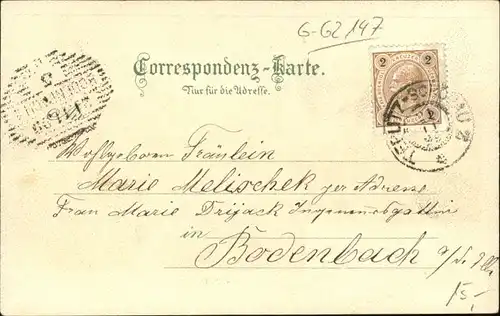 G-62 147
Correspondenz-Karte.
Nur für die Adresse.
2 2
TEPLITZ-SCHÖNAU 2
Wohlgeboren Fräulein
Marie Melischek per Adresse
Frau Marie Drijack Ingenieursgattin
in
Bodenbach a/d. Elbe
15,-